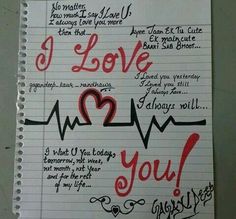 No matter,
how much I say I Love U,
I always love you more
then that....
Ayee Jaan Ek Tu Cute
Ek main cute
Baaki Sub Bhoot...
I Love
gagandeep kaur randhawa
I Loved you yesterday
I Loved you still
I always have...
I always will...
I Want U You today,
tomorrow, next week,
next month, next year
and for the rest
of my life...
You!